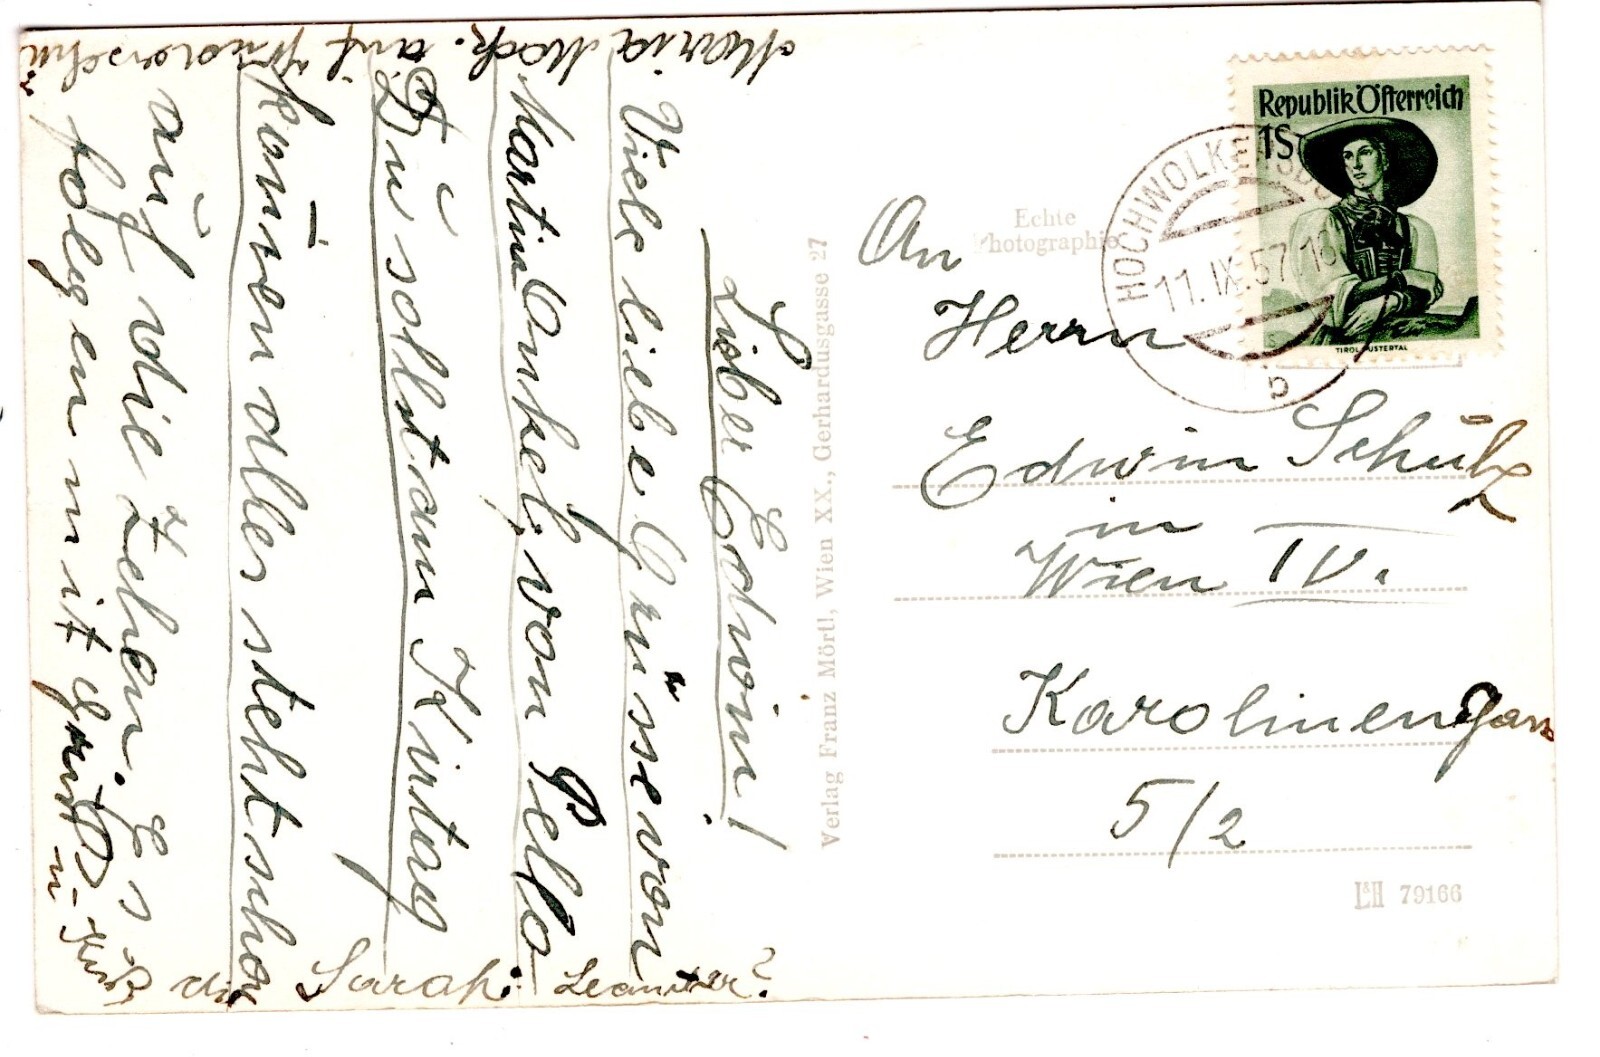 Lieber Edwin!
Viele liebe Grüsse von
Martin Onkel, von Pello
Du sollst am Kirtag
kommen dller steht schon
auf die Zehen. Es
folgen mit Gruß
u. Kuß die Sarah.
Maria Mock. auf
Verlag Franz Mörtl, Wien XX., Gerhardusgasse 27
Echte
Photographie
Republik Österreich
1S
TIROL PUSTERTAL
HOCHWOLKERSDO
11. IX. 57. 18
b
An
Herrn
Edwin Schulz
in
Wien IV.
Karolinengasse
5/2
L&H 79166